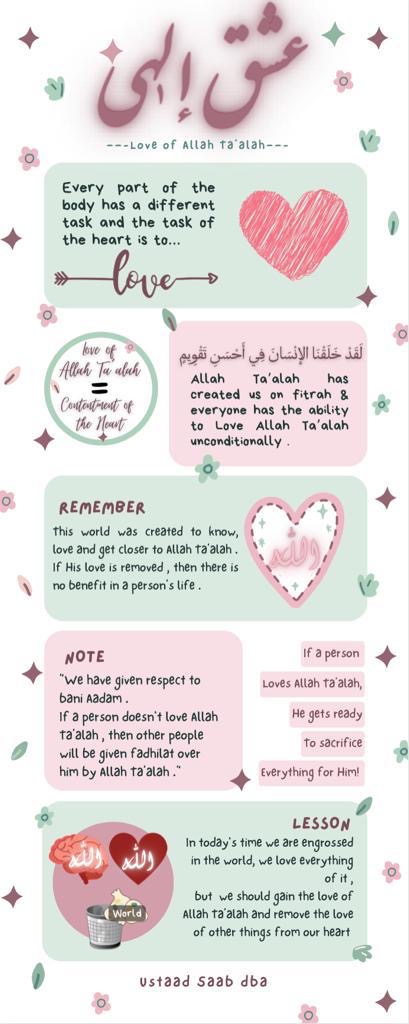 عشق إلهي
---Love of Allah Ta'alah---
Every part of the
body has a different
task and the task of
the heart is to...
love
love of
Allah Ta'alah
=
Contentment of
the Heart
لَقَدْ خَلَقْنَا الإِنْسَانَ فِي أَحْسَنِ تَقْوِيمٍ
Allah Ta'alah has
created us on fitrah &
everyone has the ability
to Love Allah Ta'alah
unconditionally .
REMEMBER
This world was created to know,
love and get closer to Allah Ta'alah .
If His love is removed , then there is
no benefit in a person's life .
الله
NOTE
"We have given respect to
bani Aadam .
If a person doesn't love Allah
Ta'alah , then other people
will be given fadhilat over
him by Allah Ta'alah ."
If a person
Loves Allah Ta'alah,
He gets ready
To sacrifice
Everything for Him!
LESSON
In today's time we are engrossed
in the world, we love everything
of it ,
but we should gain the love of
Allah Ta'alah and remove the love
of other things from our heart
الله
الله
World
Ustaad Saab dba